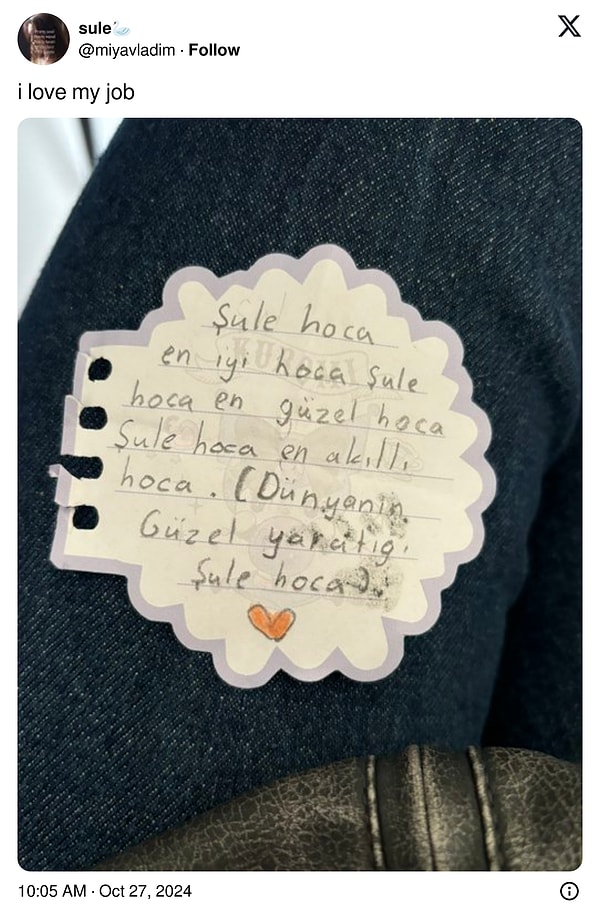 sule
@miyavladim · Follow
i love my job
Şule hoca
en iyi hoca Şule
hoca en güzel hoca
Şule hoca en akıllı
hoca. (Dünyanın
Güzel yaratığı
Şule hoca).
10:05 AM · Oct 27, 2024